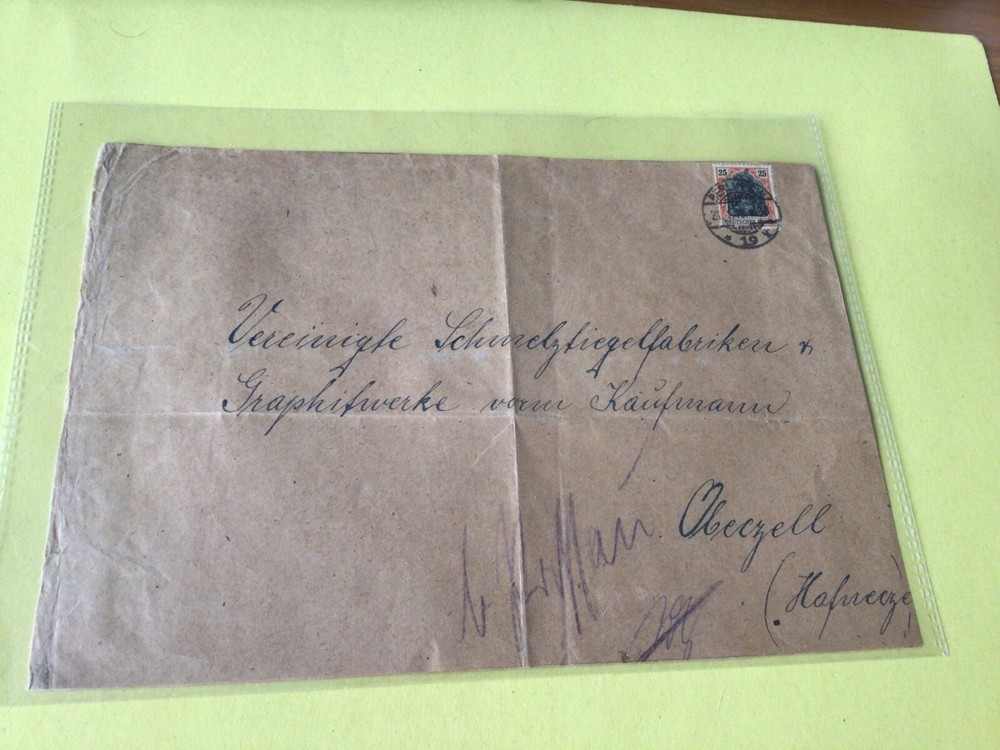 25 25
19
Vereinigte Schmelztiegelfabriken &
Graphitwerke vorm Kaufmann
b Passau
Obeczell
(Hafnecze